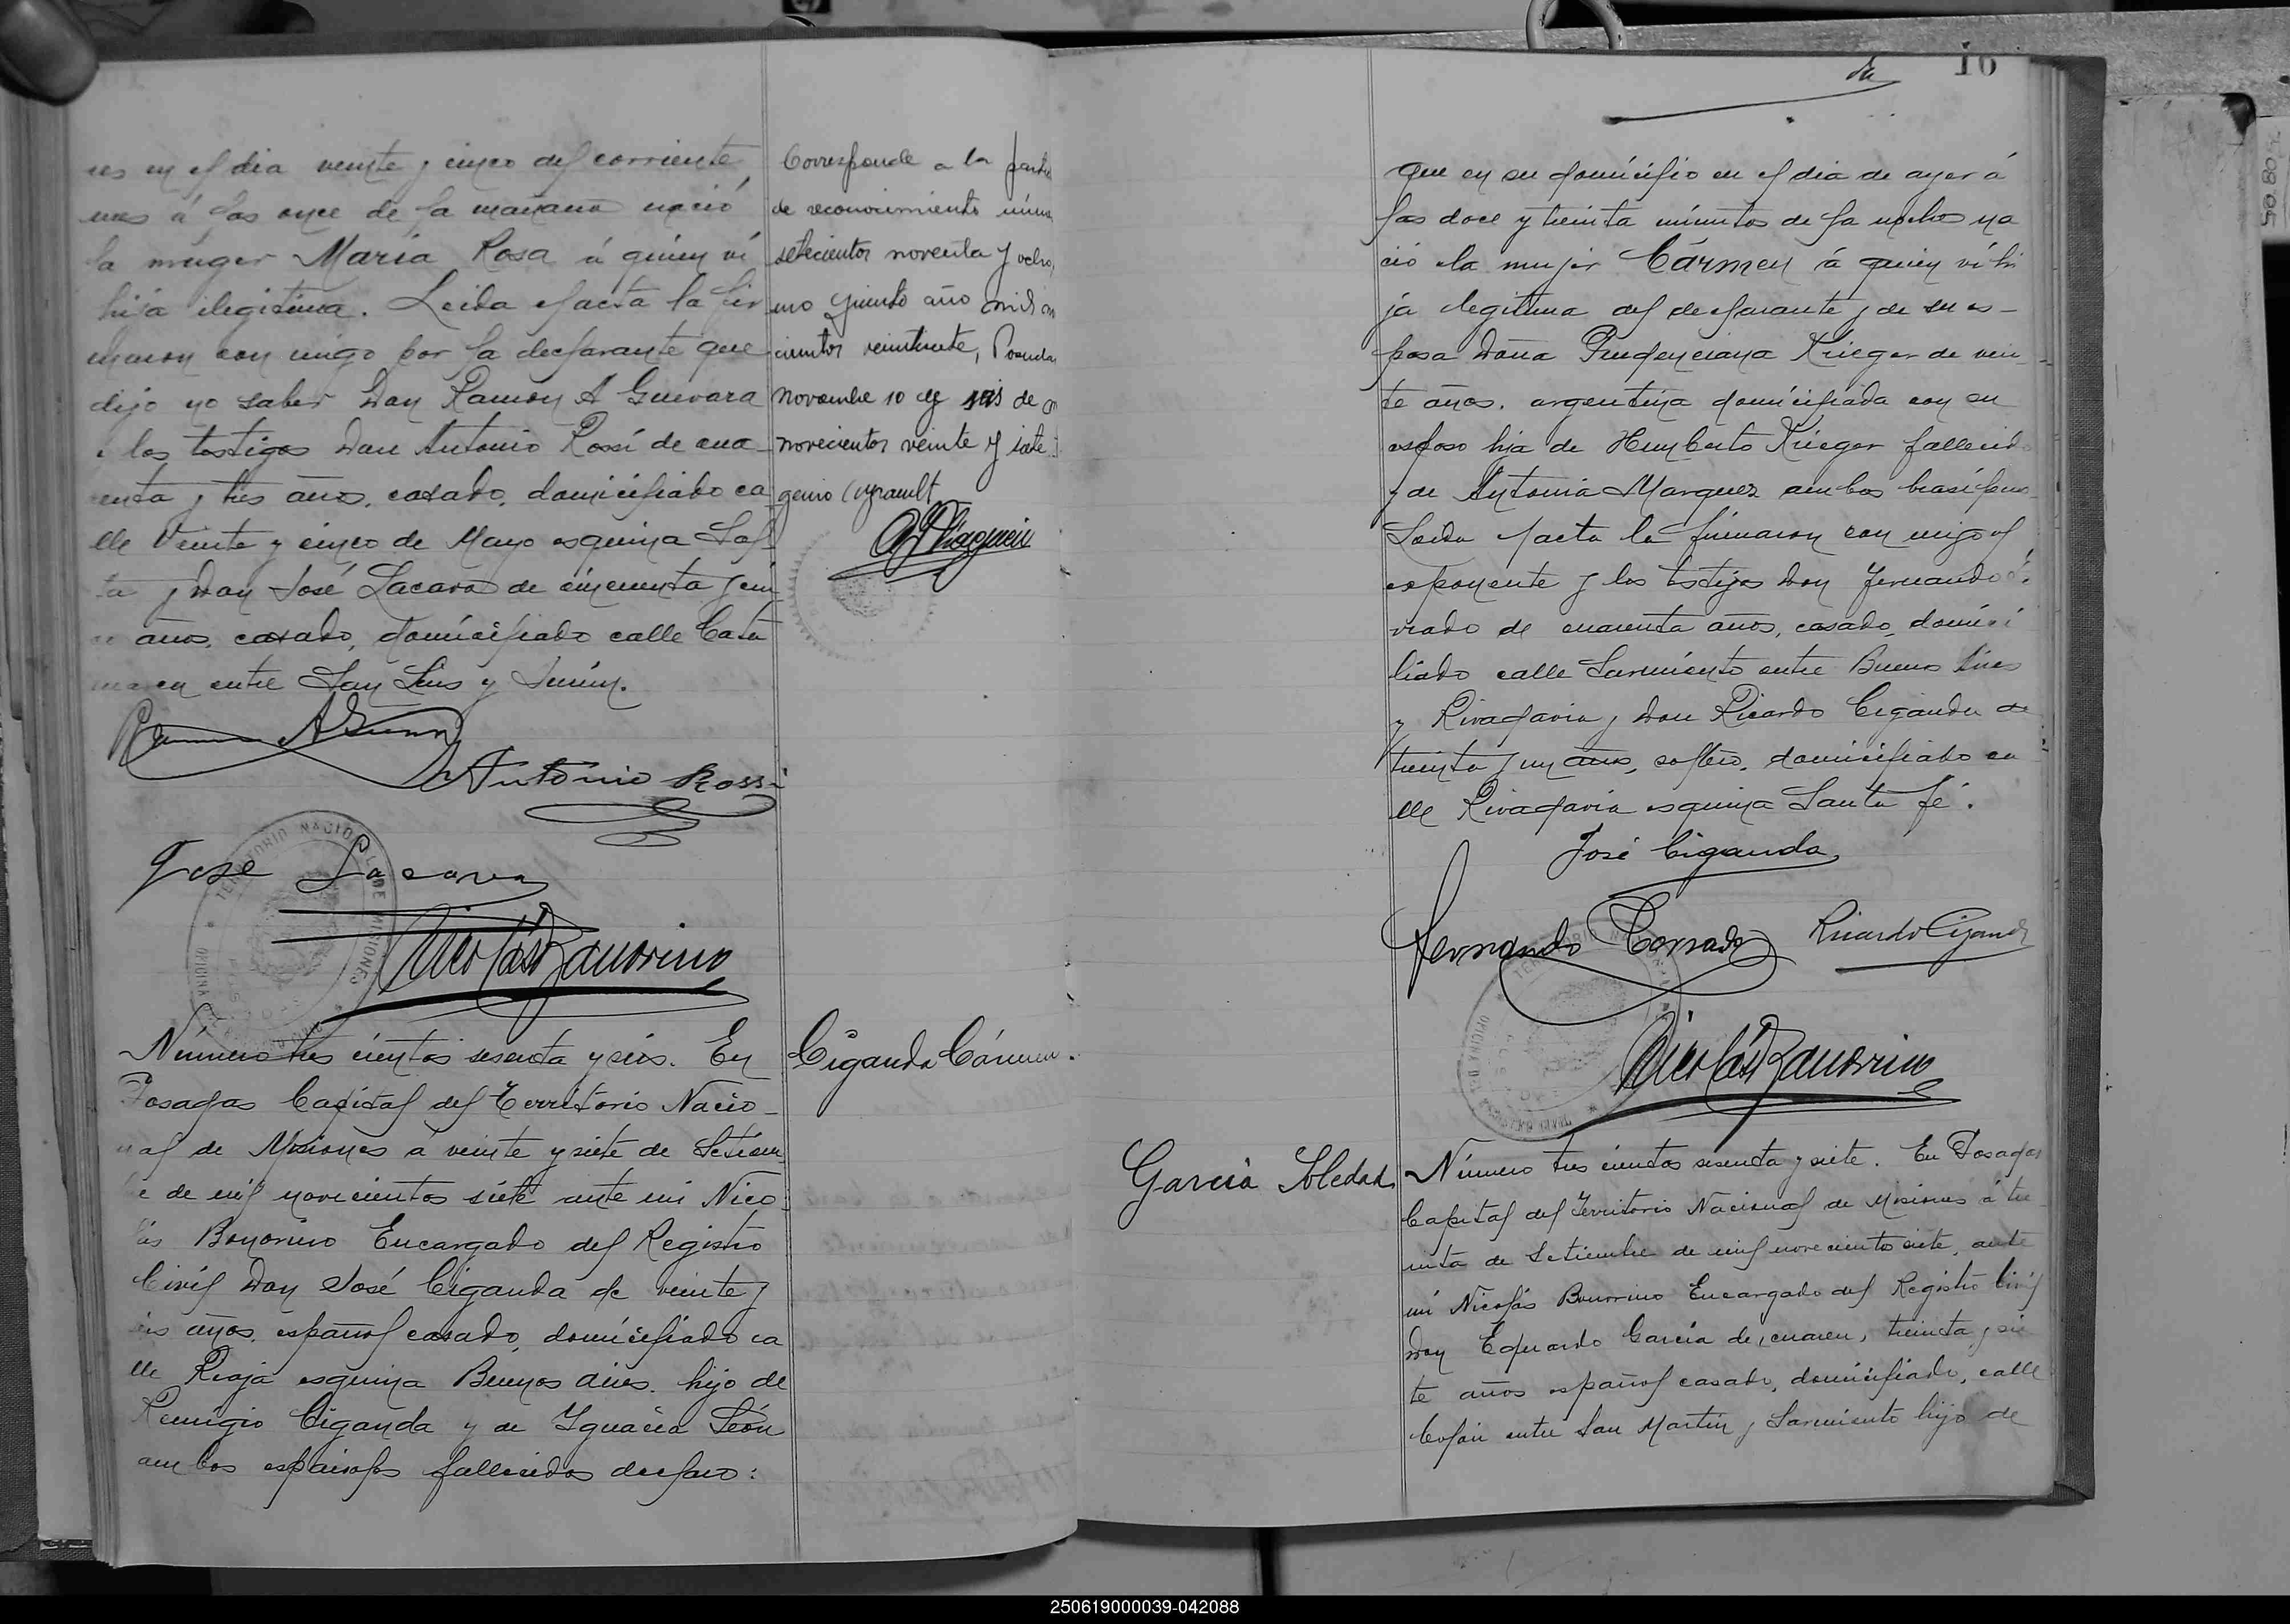 res en el dia veinte y cinco del corriente
mes á las once de la mañana nació
la muger María Rosa á quien vi
hija ilegitima. Leida el acta la fir
maron con migo por la declarante que
dijo no saber Don Ramon A Guevara
los testigos Don Antonio Rossi de cua
renta y tres años, casado, domiciliado ca
lle Veinte y cinco de Mayo esquina Sal
ta y Don José Lacava de cincuenta y cin
años, casado, domiciliado calle Cata
marca entre San Luis y Junín.
Antonio Rossi
Jose Lacava
TERRITORIO NACIONAL DE MISIONES
OFICINA
Nicolás Bonorino
Corresponde a la
de reconocimiento
setecientos noventa y ocho,
mo quinto año mil
cientos veintisiete, Posadas
Noviembre 10 de de
novecientos veinte y siete
genio
Número tres cientos sesenta y seis. En
Posadas Capital del Territorio Nacio-
nal de Misiones á veinte y siete de Setiem
de mil novecientos siete ante mi Nico
lás Bonorino Encargado del Registro
Civil Don José Ciganda de veinte y
seis años, español casado, domiciliado ca
lle Rioja esquina Buenos Aires. hijo de
Remigio Ciganda y de Ignacia León
ambos españoles fallecidos declaro:
Ciganda Cármen.
16
que en su domicilio en el dia de ayer á
las doce y treinta minutos de la noche na
ció la mujer Cármen á quien vi hi
ja legitima del declarante y de su es-
posa Doña Prudenciana Krieger de vein
te años, argentina domiciliada con su
esposo hija de Humberto Krieger fallecido
y de Antonia Marquez ambos brasileros
Leida el acta la firmaron con migo el
exponente y los testigos Don Fernando Co
rrado de cuarenta años, casado, domici
liado calle Sarmiento entre Buenos Aires
y Rivadavia y Don Ricardo Ciganda de
treinta y un años, soltero, domiciliado ca
lle Rivadavia esquina Santa Fé.
José Ciganda
Fernando Corrado Ricardo Ciganda
Nicolás Bonorino
García Soledad.
Número tres cientos sesenta y siete. En Posadas
Capital del Territorio Nacional de Misiones á tre
inta de Setiembre de mil novecientos siete, ante
mi Nicolás Bonorino Encargado del Registro Civil
Don Eduardo García de, cuaren, treinta y sie
te años español casado, domiciliado, calle
Colón entre San Martin y Sarmiento hijo de
250619000039-042088